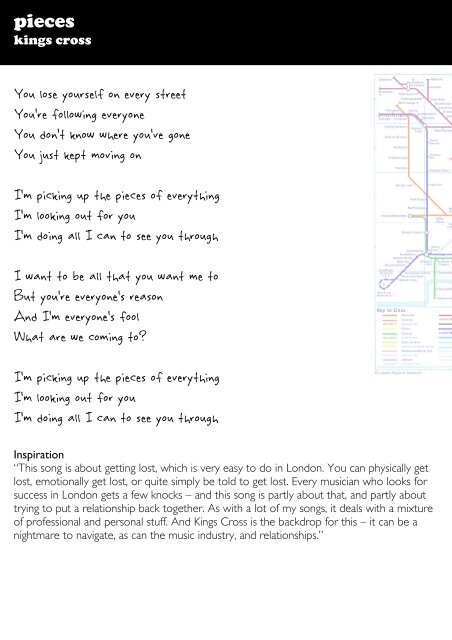 pieces
kings cross
You lose yourself on every street
You're following everyone
You don't know where you've gone
You just kept moving on
I'm picking up the pieces of everything
I'm looking out for you
I'm doing all I can to see you through
I want to be all that you want me to
But you're everyone's reason
And I'm everyone's fool
What are we coming to?
I'm picking up the pieces of everything
I'm looking out for you
I'm doing all I can to see you through
Key to Lines
Inspiration
“This song is about getting lost, which is very easy to do in London. You can physically get
lost, emotionally get lost, or quite simply be told to get lost. Every musician who looks for
success in London gets a few knocks – and this song is partly about that, and partly about
trying to put a relationship back together. As with a lot of my songs, it deals with a mixture
of professional and personal stuff. And Kings Cross is the backdrop for this – it can be a
nightmare to navigate, as can the music industry, and relationships.”